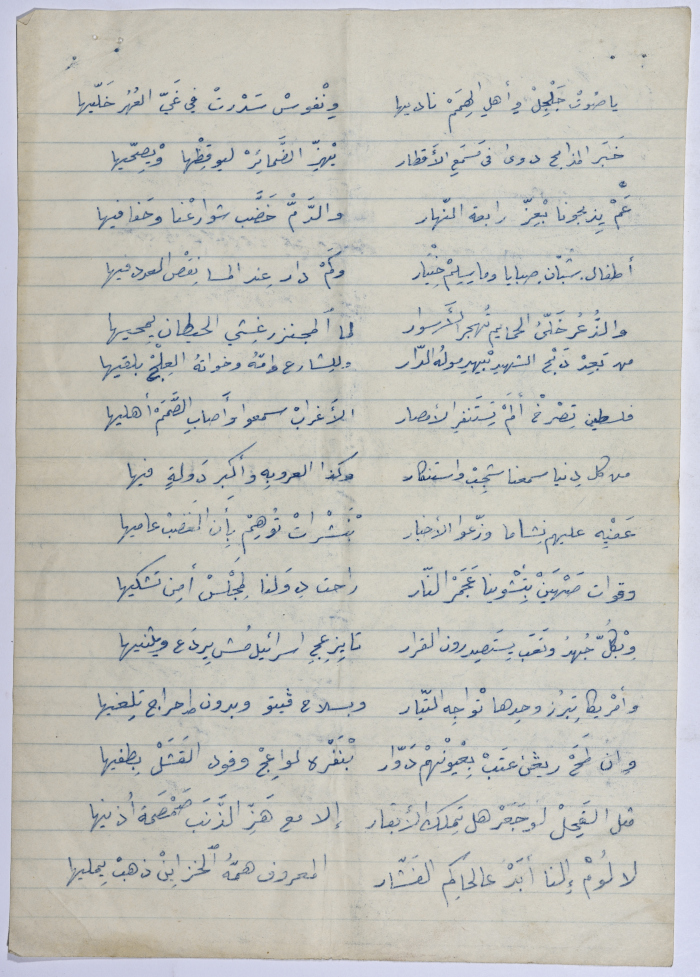 يا صُوتْ جَلْجِلْ وِأهلِ الهِمَمْ ناديها ونْفوسْ سَدْرِتْ في غَيّ العُهُر خَلّيها
خَبَر المذابح دوى في مَسمَعِ الأقطار يْهِزّ الضَّمايَرْ ليوقِظْها وْيِصحّيها
عَمْ يِذبحونا بْعِزّ رابعة النّهار والدَّمّ خَضَّب شوارعْنا وحَفافيها
أطفال شبّان صبايا وما يِسلمْ خِتْيار وكَمْ دار عِند المسا نِقْص العدد فيها
والذُّعُر خَلّى المخايم تُهجر الأسوار لمّا المجنزر غِشي الحيطان يمحيها
من بَعِدْ ذَبْح الشهيدْ بْيهدموله الدّار وبالشارع وامّهُ وخواتهُ العِلْجْ يلقيها
فلسطين تِصْرخْ أَلَمْ تِستَنفِر الأمصار الأغرابْ سمعوا وأصابِ الصَّمَمْ أهليها
من كل دنيا سمعنا شَجِبْ واستنكار وكذا العروبه وأكبر دَولةٍ فيها
عَفْيِه عليهم نِشاما وزّعوا الأخبار بْنَشْراتْ تُوهِمْ بأن الغضبْ عاميها
وقوات صَهْيَنْ بْتِشْوينا عَجَمْرِ النّار راحت دِوَلنا لِمَجْلسْ أمِن تَشكيها
وِبْكُلّ جُهِدْ وتَعَب يِستَصدِرون القرار تا يزعج اسرائيل مُش يردَع ويِثنيها
وأمْريكا تِبرُز وحِدها تْواجِه التيّار وبسلاح ڤيتو وبدون إحراج تِلغيها
وان طَحّ ريغِن عَتَبْ بِعْيُونْهُمْ دَوّار بْنَفْره لواعِجْ وفود الفَشَلْ يطفيها
مثل الفَحِلْ لو جَعَرْ هل تِملك الأبقار إلا مع هَزّ الذَّنَبْ مَصْمَصة أُذنيها
لا لُومْ إلنا أبَدْ عالحاكِم الفَشّار المعروف همُّه الخزاينْ ذهبْ يمليها